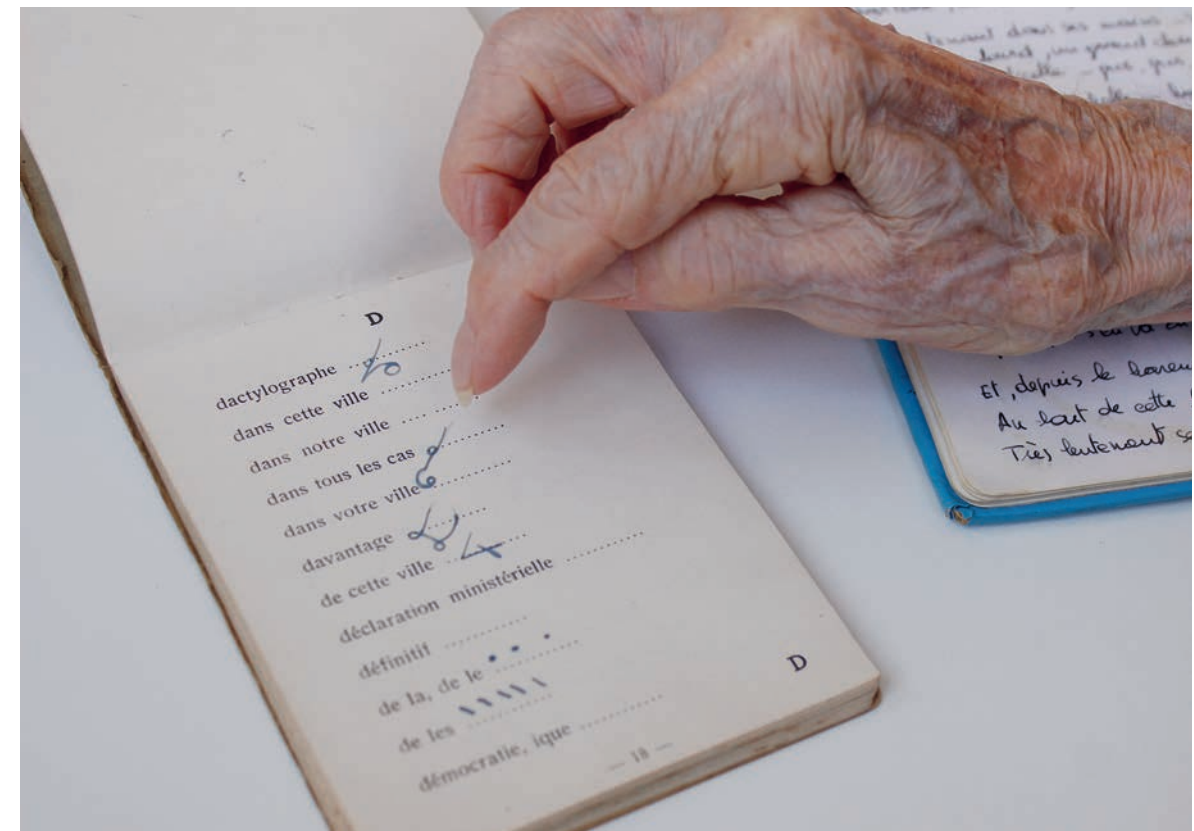 D
dactylographe ..........
dans cette ville ..........
dans notre ville ..........
dans tous les cas ..........
dans votre ville ..........
davantage ..........
de cette ville ..........
déclaration ministérielle ..........
définitif ..........
de la, de le ..........
de les ..........
démocratie, ique ..........
D
— 18 —
tenant dans ses mains
un grand
Et, depuis le
Au bout de cette
Très lentement